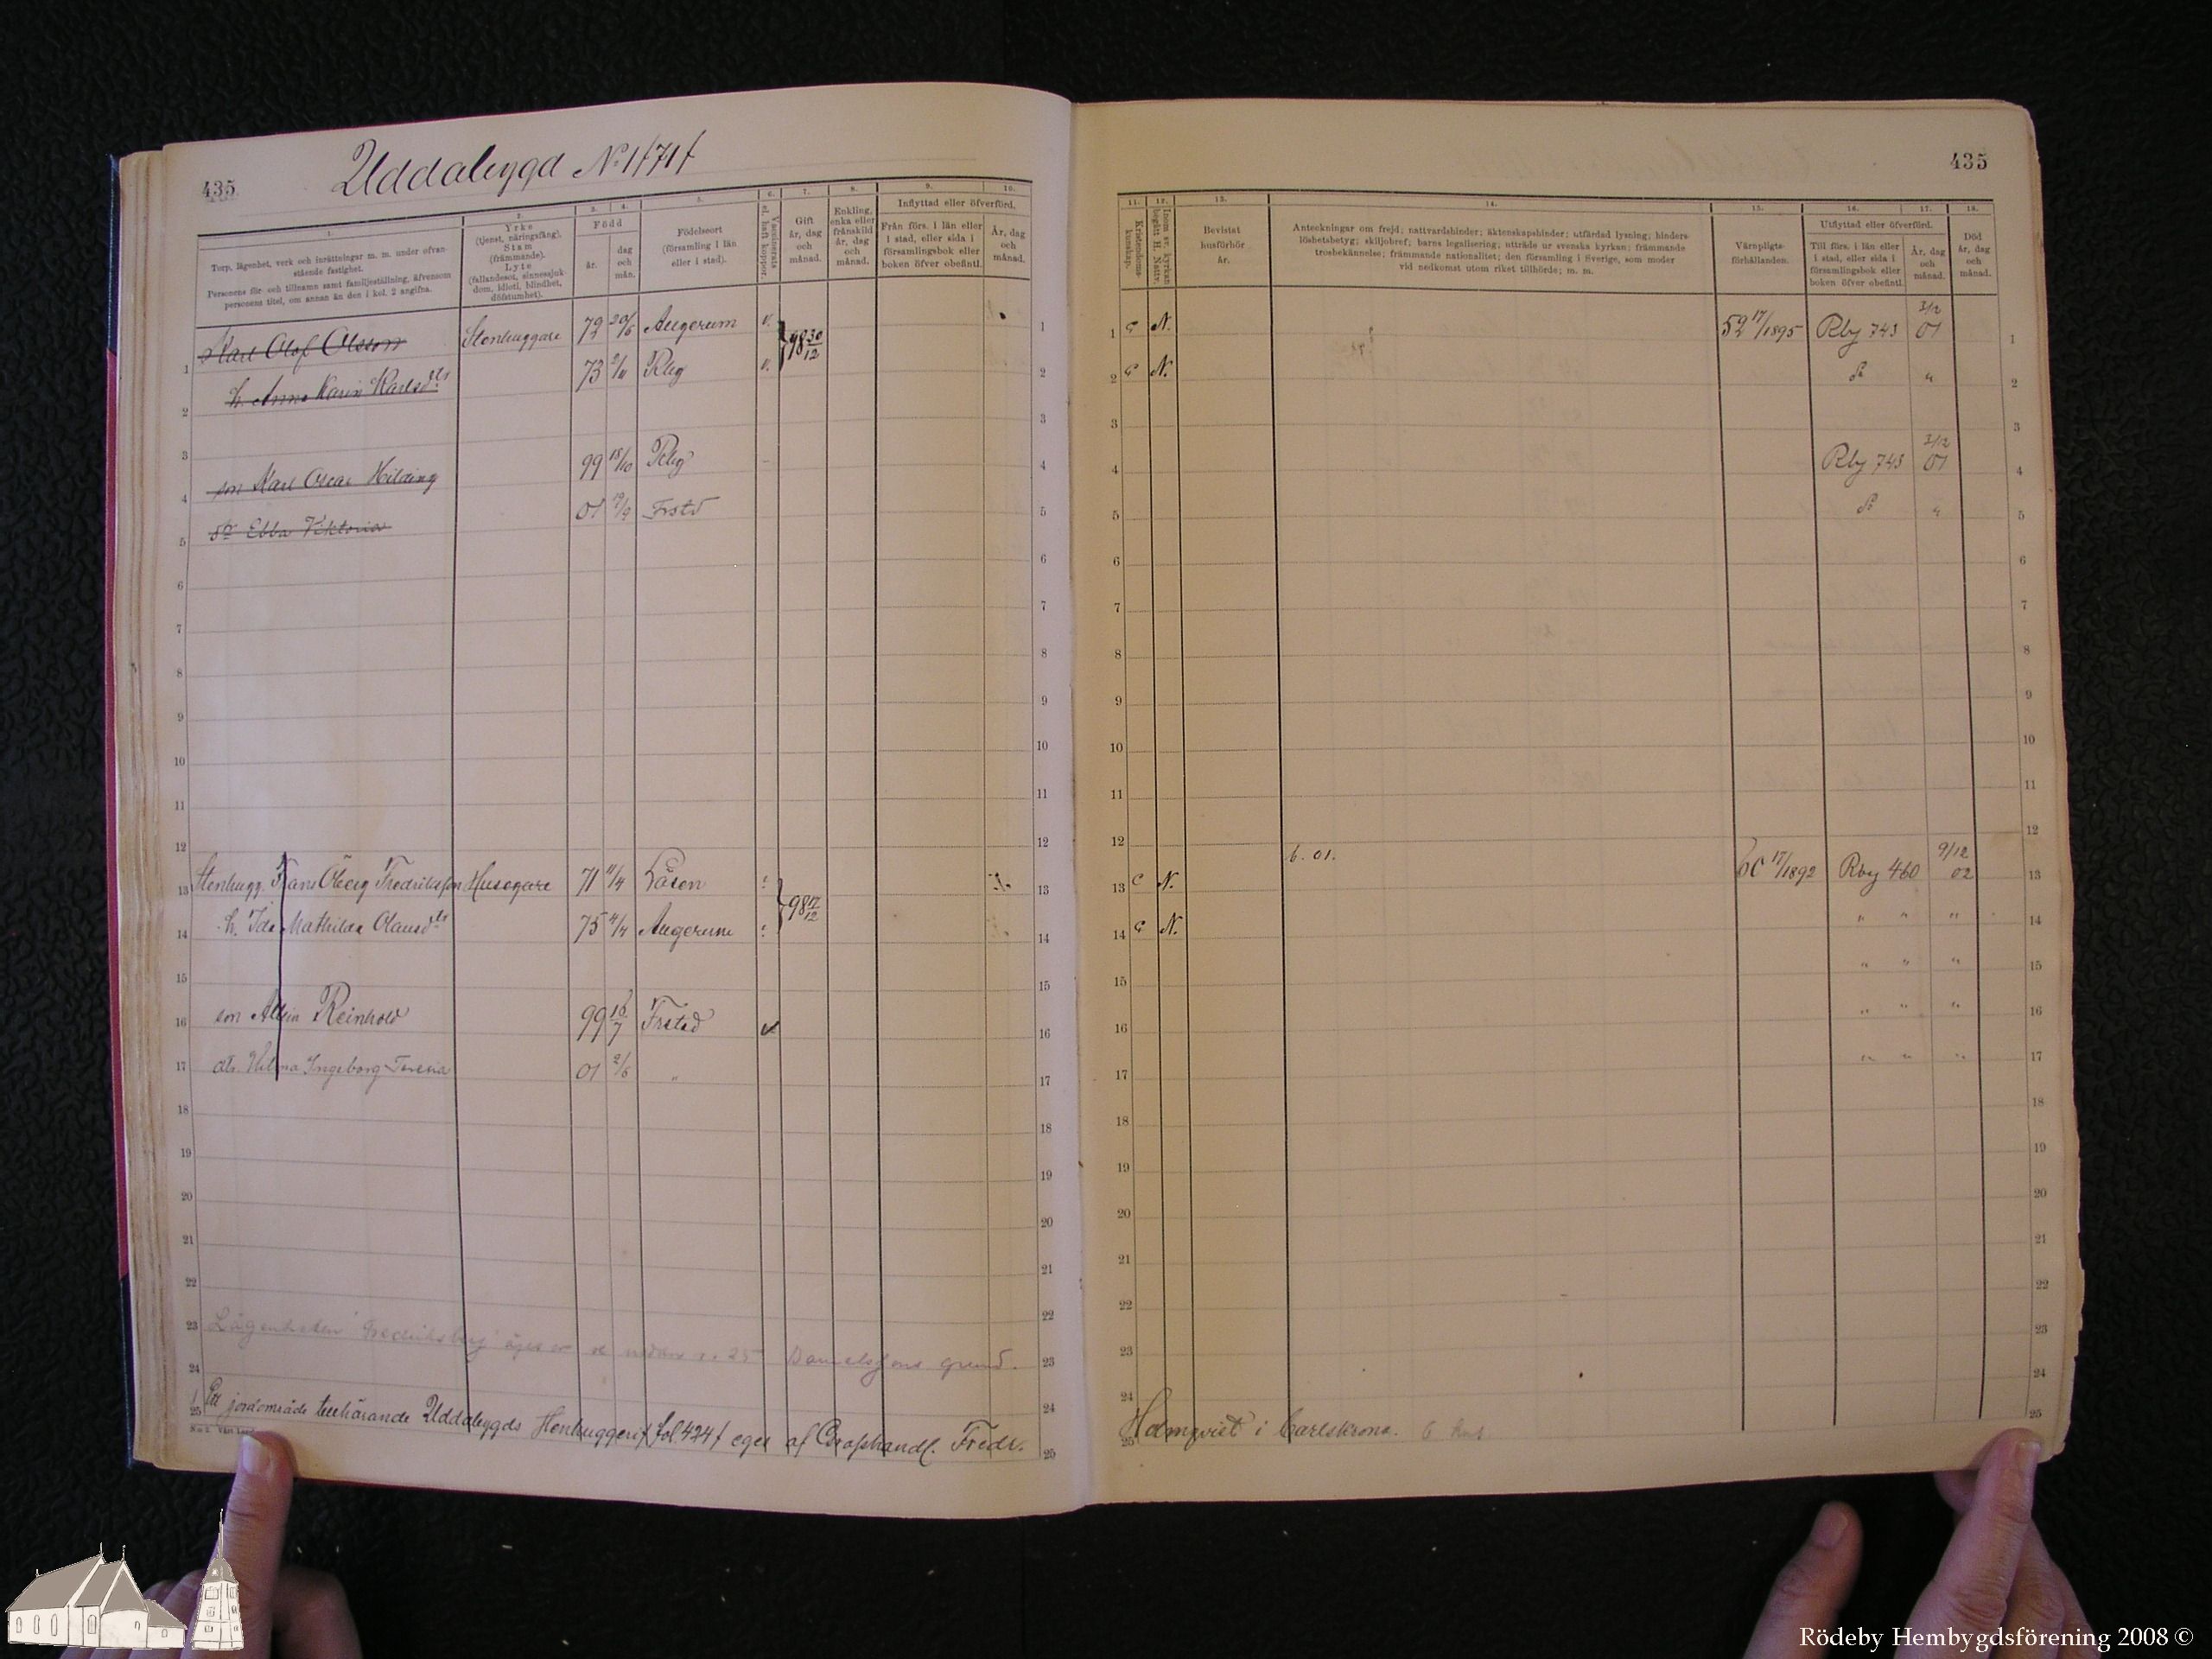 435
Uddabygd No 1/71/
1. 2. 3. 4. 5. 6. 7. 8. 9. 10.
Torp, lägenhet, verk och inrättningar m. m. under ofvan
stående fastighet.
Personens för- och tillnamn samt familjeställning, äfvensom
personens titel, om annan än den i kol. 2 angifna.
Yrke
(tjenst, näringsfång),
Stam
(främmande).
Lyte
(fallandesot, sinnessjuk-
dom, idioti, blindhet,
döfstumhet).
Född
år.
dag
och
mån.
Födelseort
(församling i län
eller i stad).
Vaccinerats
el. haft koppor.
Gift
år, dag
och
månad.
Enkling,
enka eller
frånskild
år, dag
och
månad.
Inflyttad eller öfverförd.
Från förs. i län eller
i stad, eller sida i
församlingsbok eller
boken öfver obefintl.
År, dag
och
månad.
Karl Olof Olsson Stenhuggare 72 20/6 Augerum v. 98 30/12
h. Anna Karin Karlsdtr 73 2/11 Rby v.
son Karl Oscar Hilding 99 18/10 Rby
dr Ebba Viktoria 01 19/9 Frstd
Stenhugg. Frans Öberg Fredriksson Husegare 71 11/4 Låsen 98 17/12
h. Ida Mathilda Olausdtr 75 4/4 Augerum
son Albin Reinhold 99 16/7 Frstad v
dtr. Hilma Ingeborg Teresia 01 2/6 "
Lägenheten Fredriksberg
Ett jordområde tillhörande Uddabygds Stenhuggeri /fol. 424/ eges af Garfhandl. Fredr.
435
11. 12. 13. 14. 15. 16. 17. 18.
Kristendoms-
kunskap.
Inom sv. kyrkan
begått H. Nattv.
Bevistat
husförhör
år.
Anteckningar om frejd; nattvardshinder; äktenskapshinder; utfärdad lysning; hinders-
löshetsbetyg; skiljobref; barns legalisering; utträde ur svenska kyrkan; främmande
trosbekännelse; främmande nationalitet; den församling i Sverige, som moder
vid nedkomst utom riket tillhörde; m. m.
Värnpligts-
förhållanden.
Utflyttad eller öfverförd.
Till förs. i län eller
i stad, eller sida i
församlingsbok eller
boken öfver obefintl.
År, dag
och
månad.
Död
år, dag
och
månad.
G N. 52 17/1895 Rby 743 3/12 01
G N. do "
Rby 743 3/12 01
do "
b. 01.
C N. 60 17/1892 Rby 460 9/12 02
G N. " " "
" " "
" " "
" " "
Holmqvist i Carlskrona.
Rödeby Hembygdsförening 2008 ©